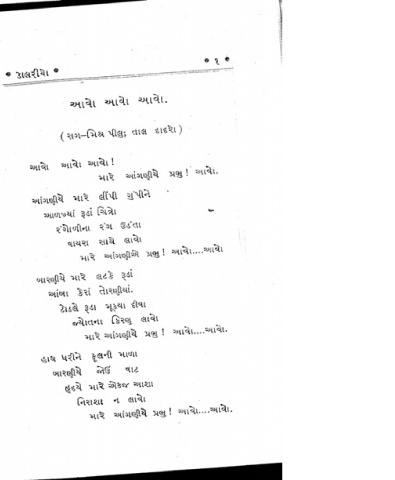 • ડાલરીયો •
• ૧ •
આવો આવો આવો.
( રાગ-મિશ્ર પીલુ; તાલ દાદરા )
આવો આવો આવો !
મારે આંગણીયે પ્રભુ ! આવો.
આંગણીયે મારે લીંપી ગુંપીને
આળખ્યાં રૂડાં ચિત્રો
રંગોળીના રંગ ઉડતા
વાયરા સાથે લાવો
મારે આંગણીએ પ્રભુ ! આવો....આવો
બારણીયે મારે લટકે રૂડાં
આંબા કેરાં તોરણીયાં.
ટોડલે રૂડા મૂક્યા દીવા
જ્યોતના કિરણ લાવો
મારે આંગણીયે પ્રભુ ! આવો....આવો.
હાથ ધરીને ફૂલની માળા
બારણીયે જોઉં વાટ
હૃદયે મારે એકજ આશા
નિરાશા ન લાવો
મારે આંગણીયે પ્રભુ ! આવો....આવો.